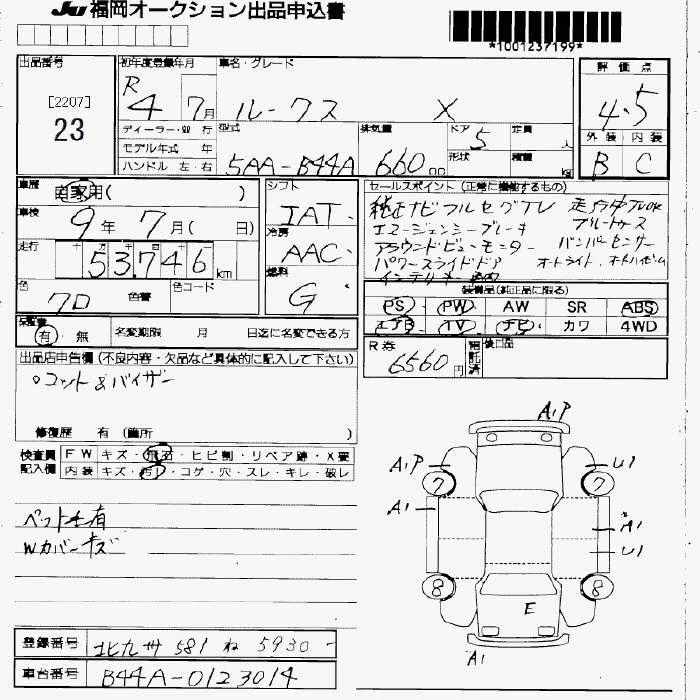 JU 福岡オークション出品申込書
*1001237199*
出品番号
[2207]
23
初年度登録年月
R 4 7月
車名・グレード
ルークス X
評価点
4.5
外装 内装
B C
ディーラー・並行
モデル年式 年
ハンドル 左・右
型式
5AA-B44A
排気量
660 CC
ドア 5
形状
定員 人
積載 kg
車歴
自家用( )
車検
9年 7月( 日)
走行
53,746 km
色
クロ
色替
色コード
シフト
IAT
冷房
AAC
燃料
G
セールスポイント (正常に機能するもの)
純正ナビ フルセグTV 走行中TVOK
エマージェンシーブレーキ ブルートゥース
アラウンドビューモニター バンパーセンサー
パワースライドドア オートライト・オートハイビーム
インテリキー
装備品(純正品に限る)
PS PW AW SR ABS
エアB TV ナビ カワ 4WD
保証書
有・無
名変期限 月 日迄に名変できる方
R券
6560円
預託済
後日品
出品店申告欄 (不良内容・欠品など具体的に記入して下さい)
修復歴 有 (箇所 )
検査員
記入欄
FW キズ・飛石・ヒビ割・リペア跡・X要
内装 キズ・汚レ・コゲ・穴・スレ・キレ・破レ
Wカバーキズ
A1P
A1P U1
7 7
A1
A1
U1
8 8
E
A1
登録番号 北九州 581 ね 5930
車台番号 B44A-0123014